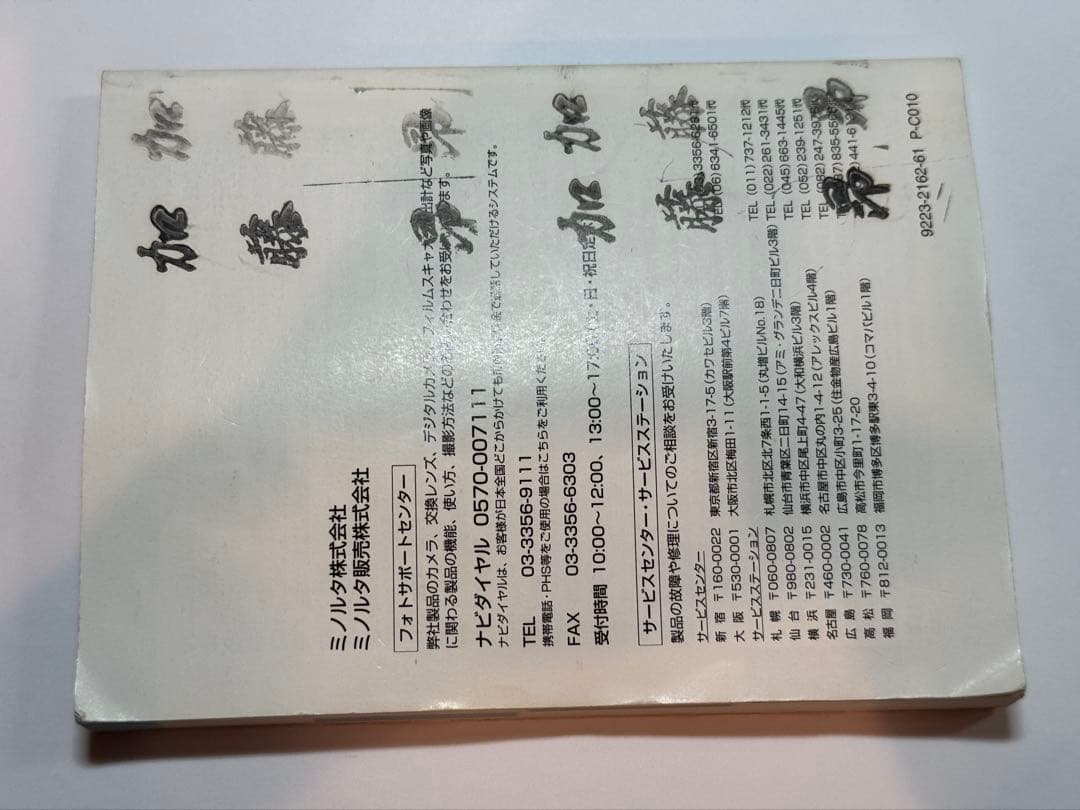 加 藤 昂 加 藤 昂
加 藤 昂 加 藤 昂
ミノルタ株式会社
ミノルタ販売株式会社
フォトサポートセンター
弊社製品のカメラ、交換レンズ、デジタルカメラ、フィルムスキャナ 出計など写真や画像
に関わる製品の機能、使い方、撮影方法などのお 合わせをお受け ます。
ナビダイヤル 0570-007111
ナビダイヤルは、お客様が日本全国どこからかけても市内 金で通話していただけるシステムです。
TEL 03-3356-9111
携帯電話・PHS等をご使用の場合はこちらをご利用くださ
FAX 03-3356-6303
受付時間 10:00〜12:00、13:00〜17: 日・祝日定
サービスセンター・サービスステーション
製品の故障や修理についてのご相談をお受けいたします。
サービスセンター
新 宿 〒160-0022 東京都新宿区新宿3-17-5(カワセビル3階) 3356-628
大 阪 〒530-0001 大阪市北区梅田1-11(大阪駅前第4ビル7階) TEL (06)6341-6501代
サービスステーション
札 幌 〒060-0807 札幌市北区北7条西1-1-5(丸増ビルNo.18) TEL (011)737-1212代
仙 台 〒980-0802 仙台市青葉区二日町14-15(アミ・グランデ二日町ビル3階) TEL (022)261-3431代
横 浜 〒231-0015 横浜市中区尾上町4-47(大和横浜ビル3階) TEL (045)663-1445代
名古屋 〒460-0002 名古屋市中区丸の内1-4-12(アレックスビル4階) TEL (052)239-1251代
広 島 〒730-0041 広島市中区小町3-25(住金物産広島ビル1階) TEL (082)247-39
高 松 〒760-0078 高松市今里町1-17-20 835-55
福 岡 〒812-0013 福岡市博多区博多駅東3-4-10(コマバビル1階) 441-6
9223-2162-61 P-C010